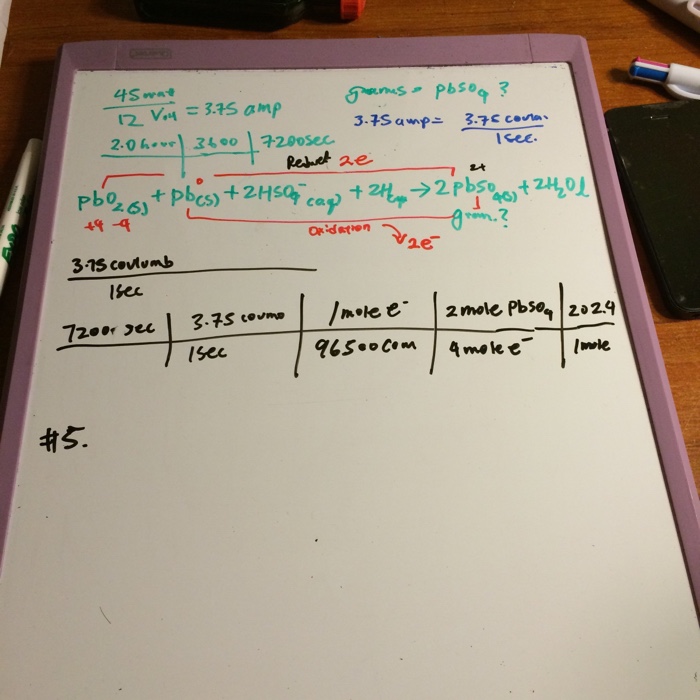 45 watt / 12 Volt = 3.75 amp
grams = pbSO4 ?
3.75 amp = 3.75 coulm. / 1sec.
2.0 hour | 3600 | 7200sec
Reduct 2e
2+
pbO2(s) + pb(s) + 2HSO4- (aq) + 2H(aq) → 2pbSO4(s) + 2H2Ol
+4 -4
0
Oxidation 2e-
gram.?
3.75 coulumb
1sec
7200 sec | 3.75 coumo | 1mole e- | 2mole PbSO4 | 202.4
1sec | 96500 Com | 4mole e- | 1mole
#5.